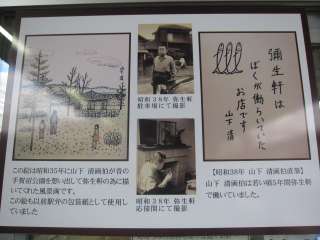 この絵は昭和35年に山下 清画伯が昔の
手賀沼公園を想い出して弥生軒の為に描い
てくれた風景画です。
この絵も以前駅弁の包装紙として使用し
ていました
昭和38年 弥生軒
駐車場にて撮影
昭和38年 弥生軒
応接間にて撮影
彌生軒は
ぼくが働らいていた
お店です
山下 清
【昭和38年 山下 清画伯直筆】
山下 清画伯は若い頃5年間弥生軒
で働いていました。